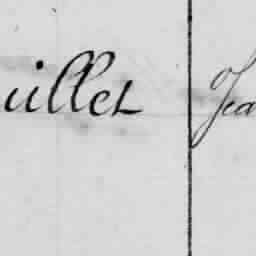 uillet Jea